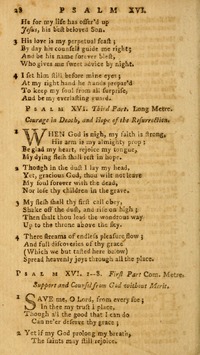 28 PSALM XVI.
He for my life has offer'd up
Jesus, his best beloved Son.
3 His love is my perpetual feast;
By day his counsels guide me right;
And be his name forever blest,
Who gives me sweet advice by night.
4 I set him still before mine eyes;
At my right hand he stands prepar'd
To keep my soul from all surprise,
And be my everlasting guard.
PSALM XVI. Third Part. Long Metre.
Courage in Death, and Hope of the Resurrection.
WHEN God is nigh, my faith is strong,
His arm is my almighty prop:
Be glad my heart, rejoice my tongue,
My dying flesh shall rest in hope.
2 Though in the dust I lay my head,
Yet, gracious God, thou wilt not leave
My soul forever with the dead,
Nor lose thy children in the grave.
3 My flesh shall thy first call obey,
Shake off the dust, and rise on high;
Then shalt thou lead the wondrous way
Up to the throne above the sky.
4 There streams of endless pleasure flow;
And full discoveries of thy grace
(Which we but tasted here below)
Spread heavenly joys through all the place.
PSALM XVI. 1—8. First Part Com. Metre.
Support and Counsel from God without Merit.
1 SAVE me, O Lord, from every foe;
In thee my trust I place,
Though all the good that I can do
Can ne'er deserve thy grace;
2 Yet if my God prolong my breath,
The saints may still rejoice.